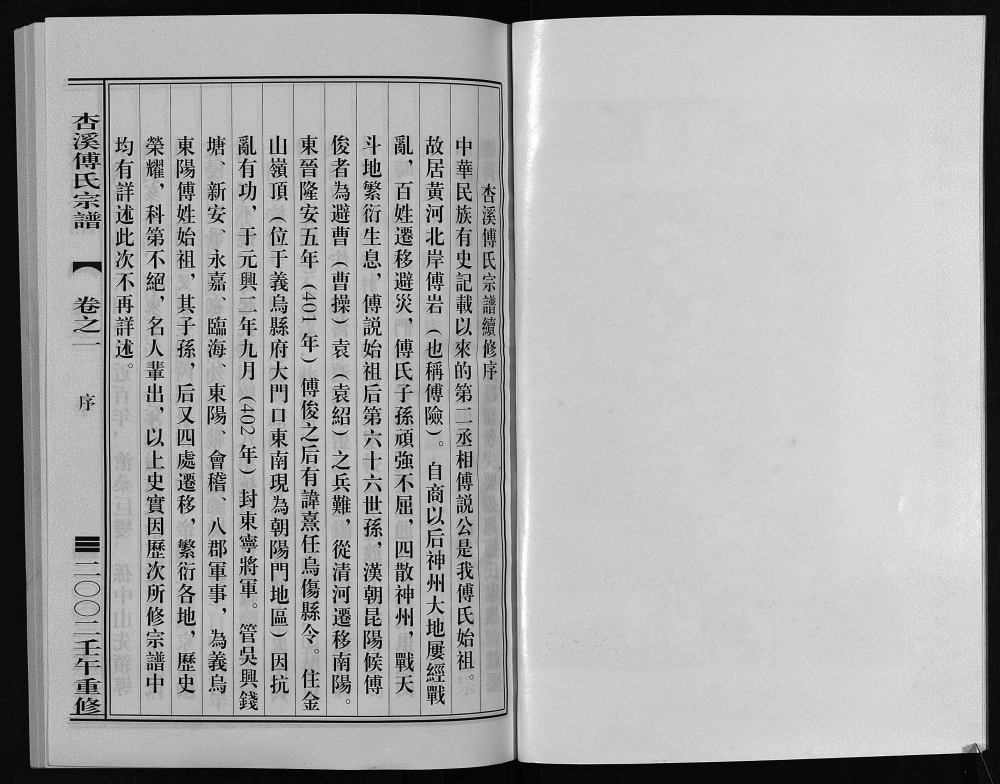 杏溪傅氏宗譜續修序
中華民族有史記載以來的第二丞相傅説公是我傅氏始祖。
故居黃河北岸傅岩（也稱傅險）。自商以后神州大地屢經戰
亂，百姓遷移避災，傅氏子孫頑強不屈，四散神州，戰天
斗地繁衍生息，傅説始祖后第六十六世孫，漢朝昆陽候傅
俊者為避曹（曹操）袁（袁紹）之兵難，從清河遷移南陽。
東晉隆安五年（401年）傅俊之后有諱熹任烏傷縣令。住金
山嶺頂（位于義烏縣府大門口東南現為朝陽門地區）因抗
亂有功，于元興二年九月（402年）封東寧將軍。管吳興錢
塘、新安、永嘉、臨海、東陽、會稽、八郡軍事，為義烏
東陽傅姓始祖，其子孫，后又四處遷移，繁衍各地，歷史
榮耀，科第不絕，名人輩出，以上史實因歷次所修宗譜中
均有詳述此次不再詳述。
杏溪傅氏宗譜
卷之一
序
二〇〇二壬午重修